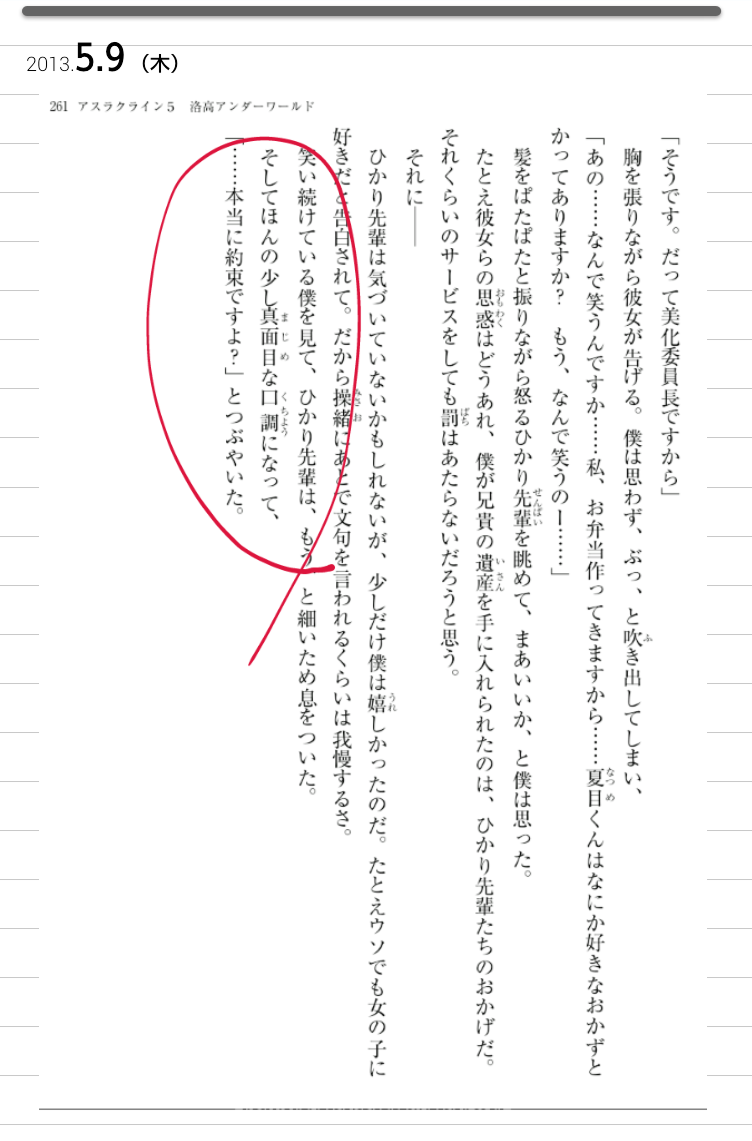 2013.5.9（木）
261 アスラクライン5 洛高アンダーワールド
「そうです。だって美化委員長ですから」
胸を張りながら彼女が告げる。僕は思わず、ぶっ、と吹き出してしまい、
「あの……なんで笑うんですか……私、お弁当作ってきますから……夏目くんはなにか好きなおかずと
かってありますか？　もう、なんで笑うのー……」
髪をぱたぱたと振りながら怒るひかり先輩を眺めて、まあいいか、と僕は思った。
たとえ彼女らの思惑はどうあれ、僕が兄貴の遺産を手に入れられたのは、ひかり先輩たちのおかげだ。
それくらいのサービスをしても罰はあたらないだろうと思う。
それに――
ひかり先輩は気づいていないかもしれないが、少しだけ僕は嬉しかったのだ。たとえウソでも女の子に
好きだと告白されて。だから操緒にあとで文句を言われるくらいは我慢するさ。
笑い続けている僕を見て、ひかり先輩は、もう、と細いため息をついた。
そしてほんの少し真面目な口調になって、
「……本当に約束ですよ？」とつぶやいた。